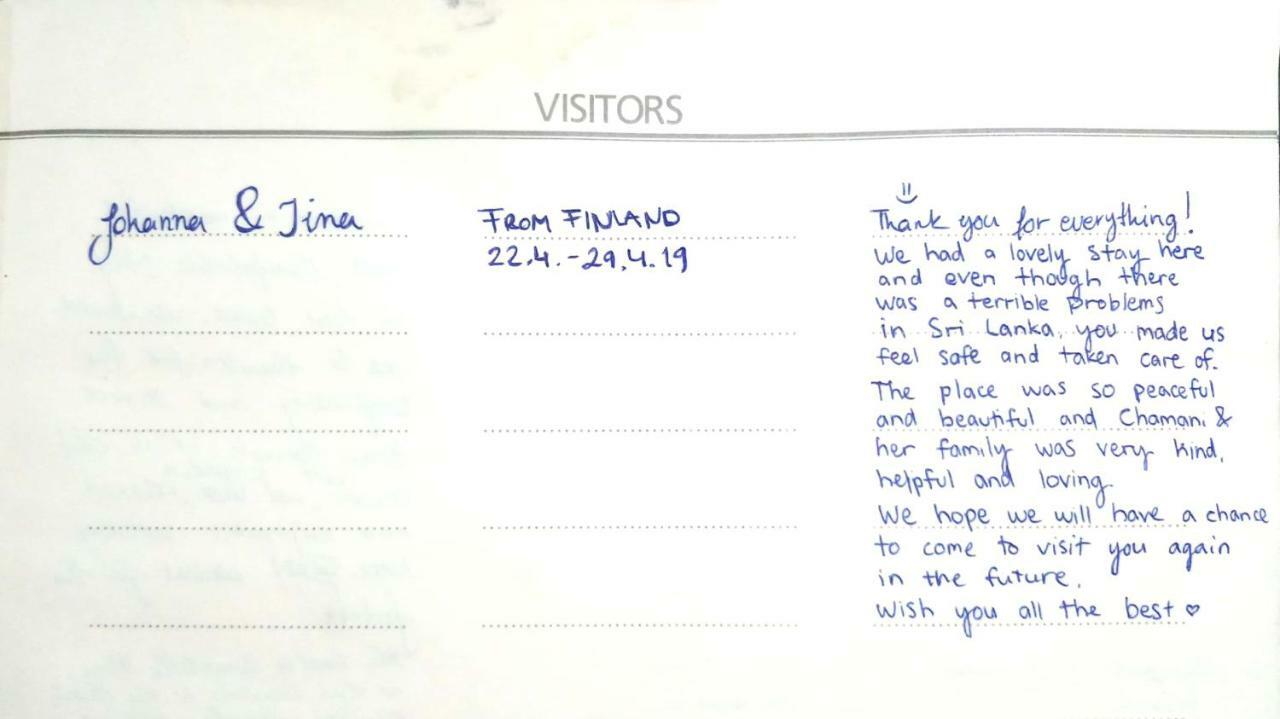 VISITORS
Johanna & Jina
FROM FINLAND
22.4.-29.4.19
Thank you for everything!
We had a lovely stay here
and even though there
was a terrible problems
in Sri Lanka, you made us
feel safe and taken care of.
The place was so peaceful
and beautiful and Chamani &
her family was very kind,
helpful and loving.
We hope we will have a chance
to come to visit you again
in the future.
Wish you all the best ♡